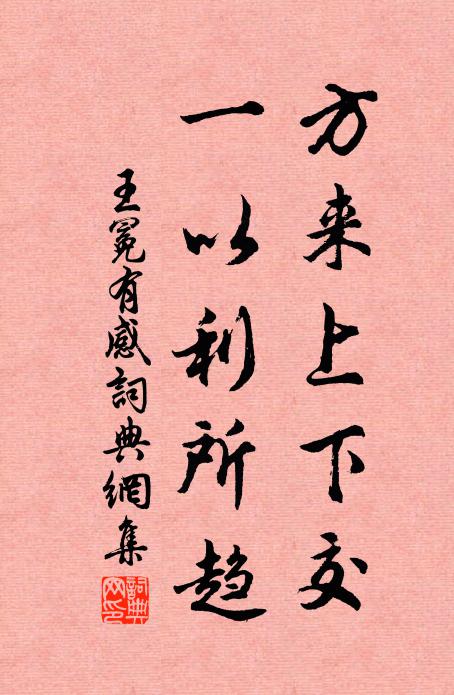 方来上下交
一以利所趋
王冕有感詞典網集
詞典
网印